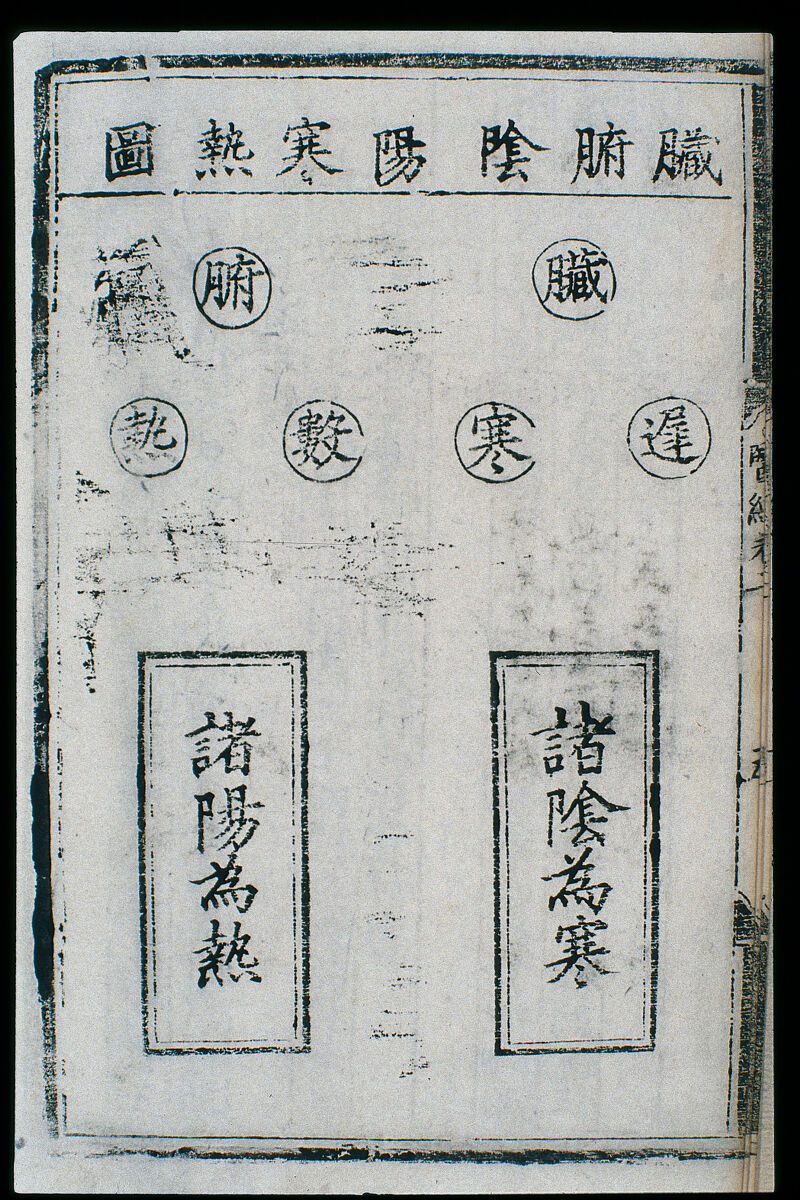 臟腑陰陽寒熱圖
臟
腑
遲
寒
數
熱
諸陰為寒
諸陽為熱